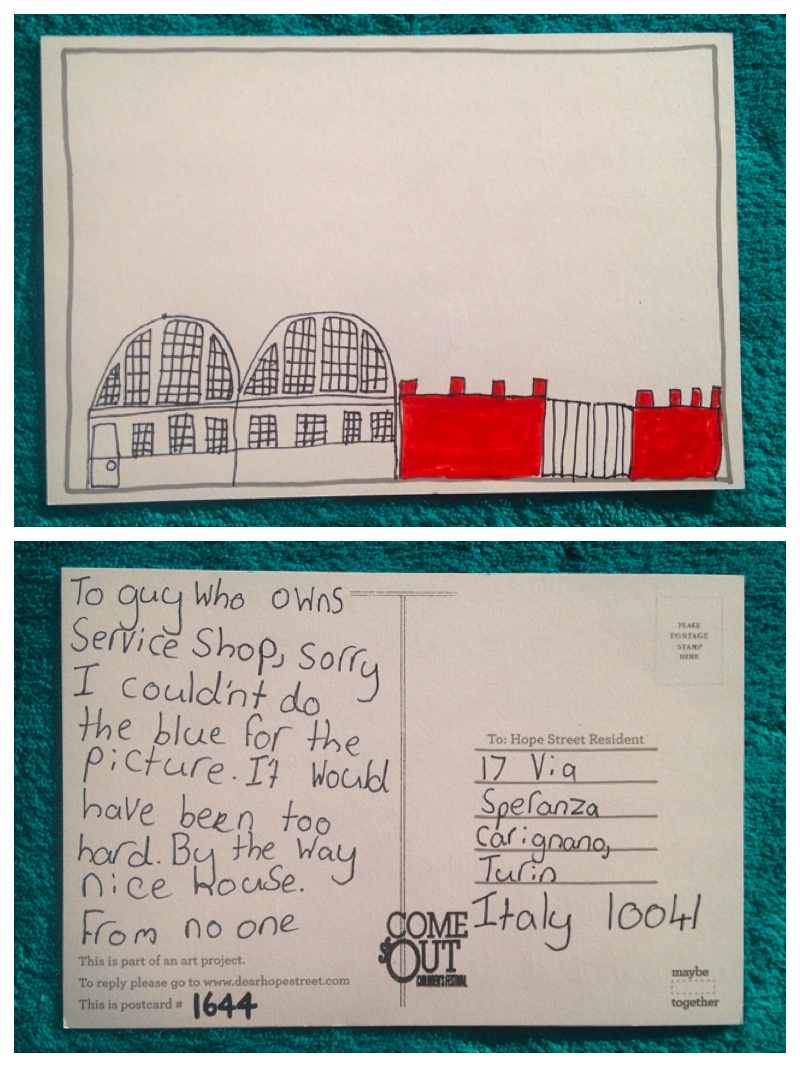 To guy who owns
Service Shop, Sorry
I could'nt do
the blue for the
picture. It would
have been too
hard. By the way
nice house.
From no one
This is part of an art project.
To reply please go to www.dearhopestreet.com
This is postcard # 1644
COME
OUT
CHILDREN'S FESTIVAL
PLACE
POSTAGE
STAMP
HERE
To: Hope Street Resident
17 Via
Speranza
Carignano,
Turin
Italy 10041
maybe
together